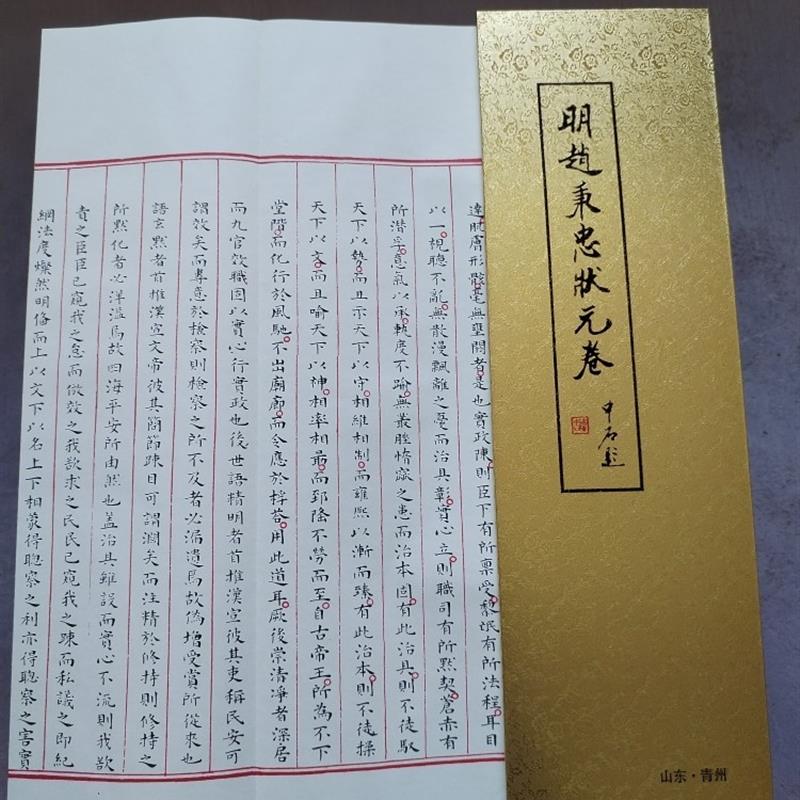 明趙秉忠狀元卷
中石題
山东·青州
違肬膚形骸毫無壅閼者是也實政陳則臣下有所稟受黎氓有所法程耳目
以一視聽不亂無散漫飄離之憂而治具彰實心立則職司有所默契蒼赤有
所潛孚意氣以承軌度不踰無叢脞惰窳之患而治本固有此治具則不徒馭
天下以勢而且示天下以守相維相制而雍熙以漸而臻有此治本則不徒操
天下以文而且喻天下以神相率相最而郅隆不勞而至自古帝王所為不下
堂階而化行於風馳不出廟廊而令應於桴答用此道耳厥後崇清凈者深居
而九官效職固以實心行實政也後世語精明者首推漢宣彼其吏稱民安可
謂效矣而專意於檢察則檢察之所不及者必漏遺焉故偽增受賞所從來也
語玄默者首推漢宣文帝彼其簡節疎目可謂濶矣而注精於修持則修持之
所默化者必洋溢焉故四海平安所由然也蓋治具雖設而實心不流則我欲
責之臣臣已窺我之怠而倣效之我欲求之民民已窺我之疎而私議之即紀
綱法度燦然明俻而上以文下以名上下相蒙得聰察之利亦得聰察之害實